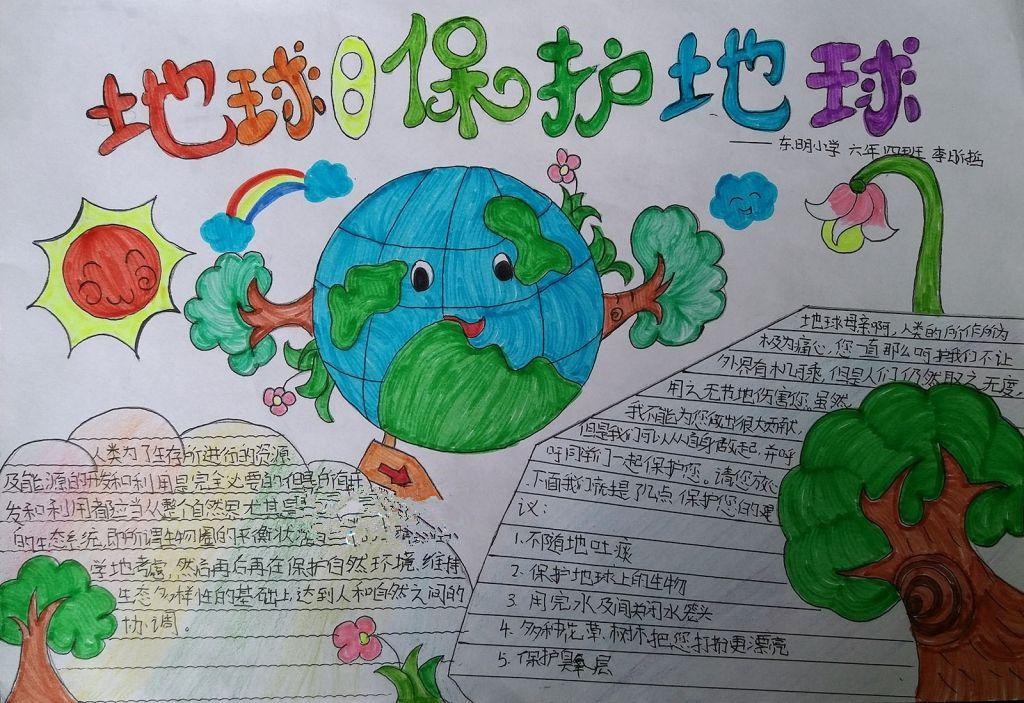 地球 保护地球
—— 东明小学 六年四班 李
人类为了生存所进行的资源
及能源的开发和利用是完全必要的但是所有开
发和利用都应当从整个自然界尤其是
的生态系统,即所谓生物圈的平衡状态
学地考虑,然后再后再在保护自然环境、维持
生态多样性的基础上,达到人和自然之间的
协调。
地球母亲啊,人类的所作所为
极为痛心,您一直那么呵护我们不让
外界有机可乘,但是人们仍然取之无度,
用之无节地伤害您,虽然,
我不能为您做出很大贡献
但是我们可以从自身做起,并呼
吁同龄们一起保护您。请您放心
下面我们就提了几点保护您的建
议:
1.不随地吐痰
2.保护地球上的生物
3.用完水及间关闭水笼头
4.多种花、草、树木,把您打扮更漂亮
5.保护臭氧层